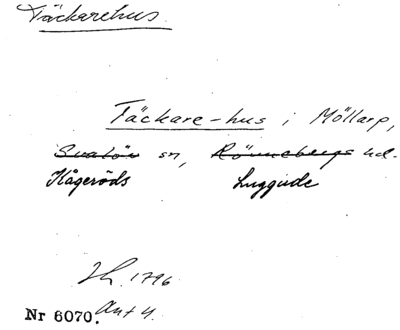 Täckarehus.
Täckare-hus i Möllarp,
Svalöv sn, Rönnebergs hd.
Kågeröds Luggude
Jh. 1796
Nr 6070. Ant 4.